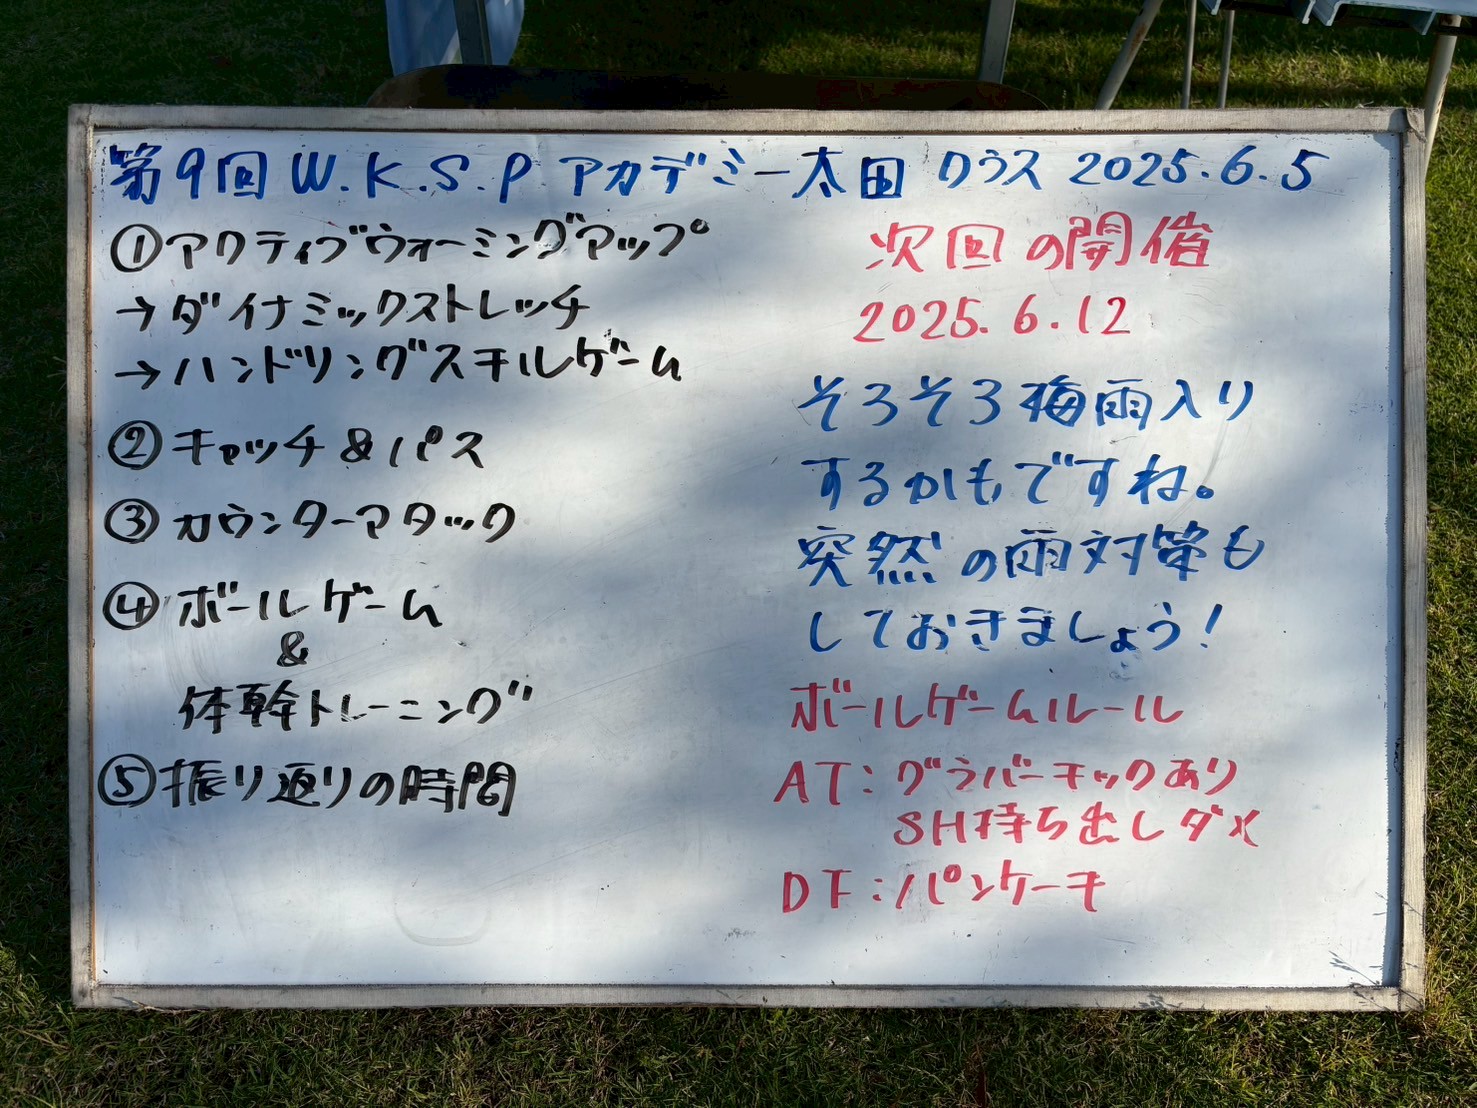 第9回 W.K.S.P アカデミー太田 クラス 2025.6.5
①アクティブウォーミングアップ
→ダイナミックストレッチ
→ハンドリングスキルゲーム
②キャッチ&パス
③カウンターアタック
④ボールゲーム
&
体幹トレーニング
⑤振り返りの時間
次回の開催
2025.6.12
そろそろ梅雨入り
するかもですね。
突然の雨対策も
しておきましょう!
ボールゲームルール
AT:グラバーキックあり
SH持ち出しダメ
DF:パンケーキ